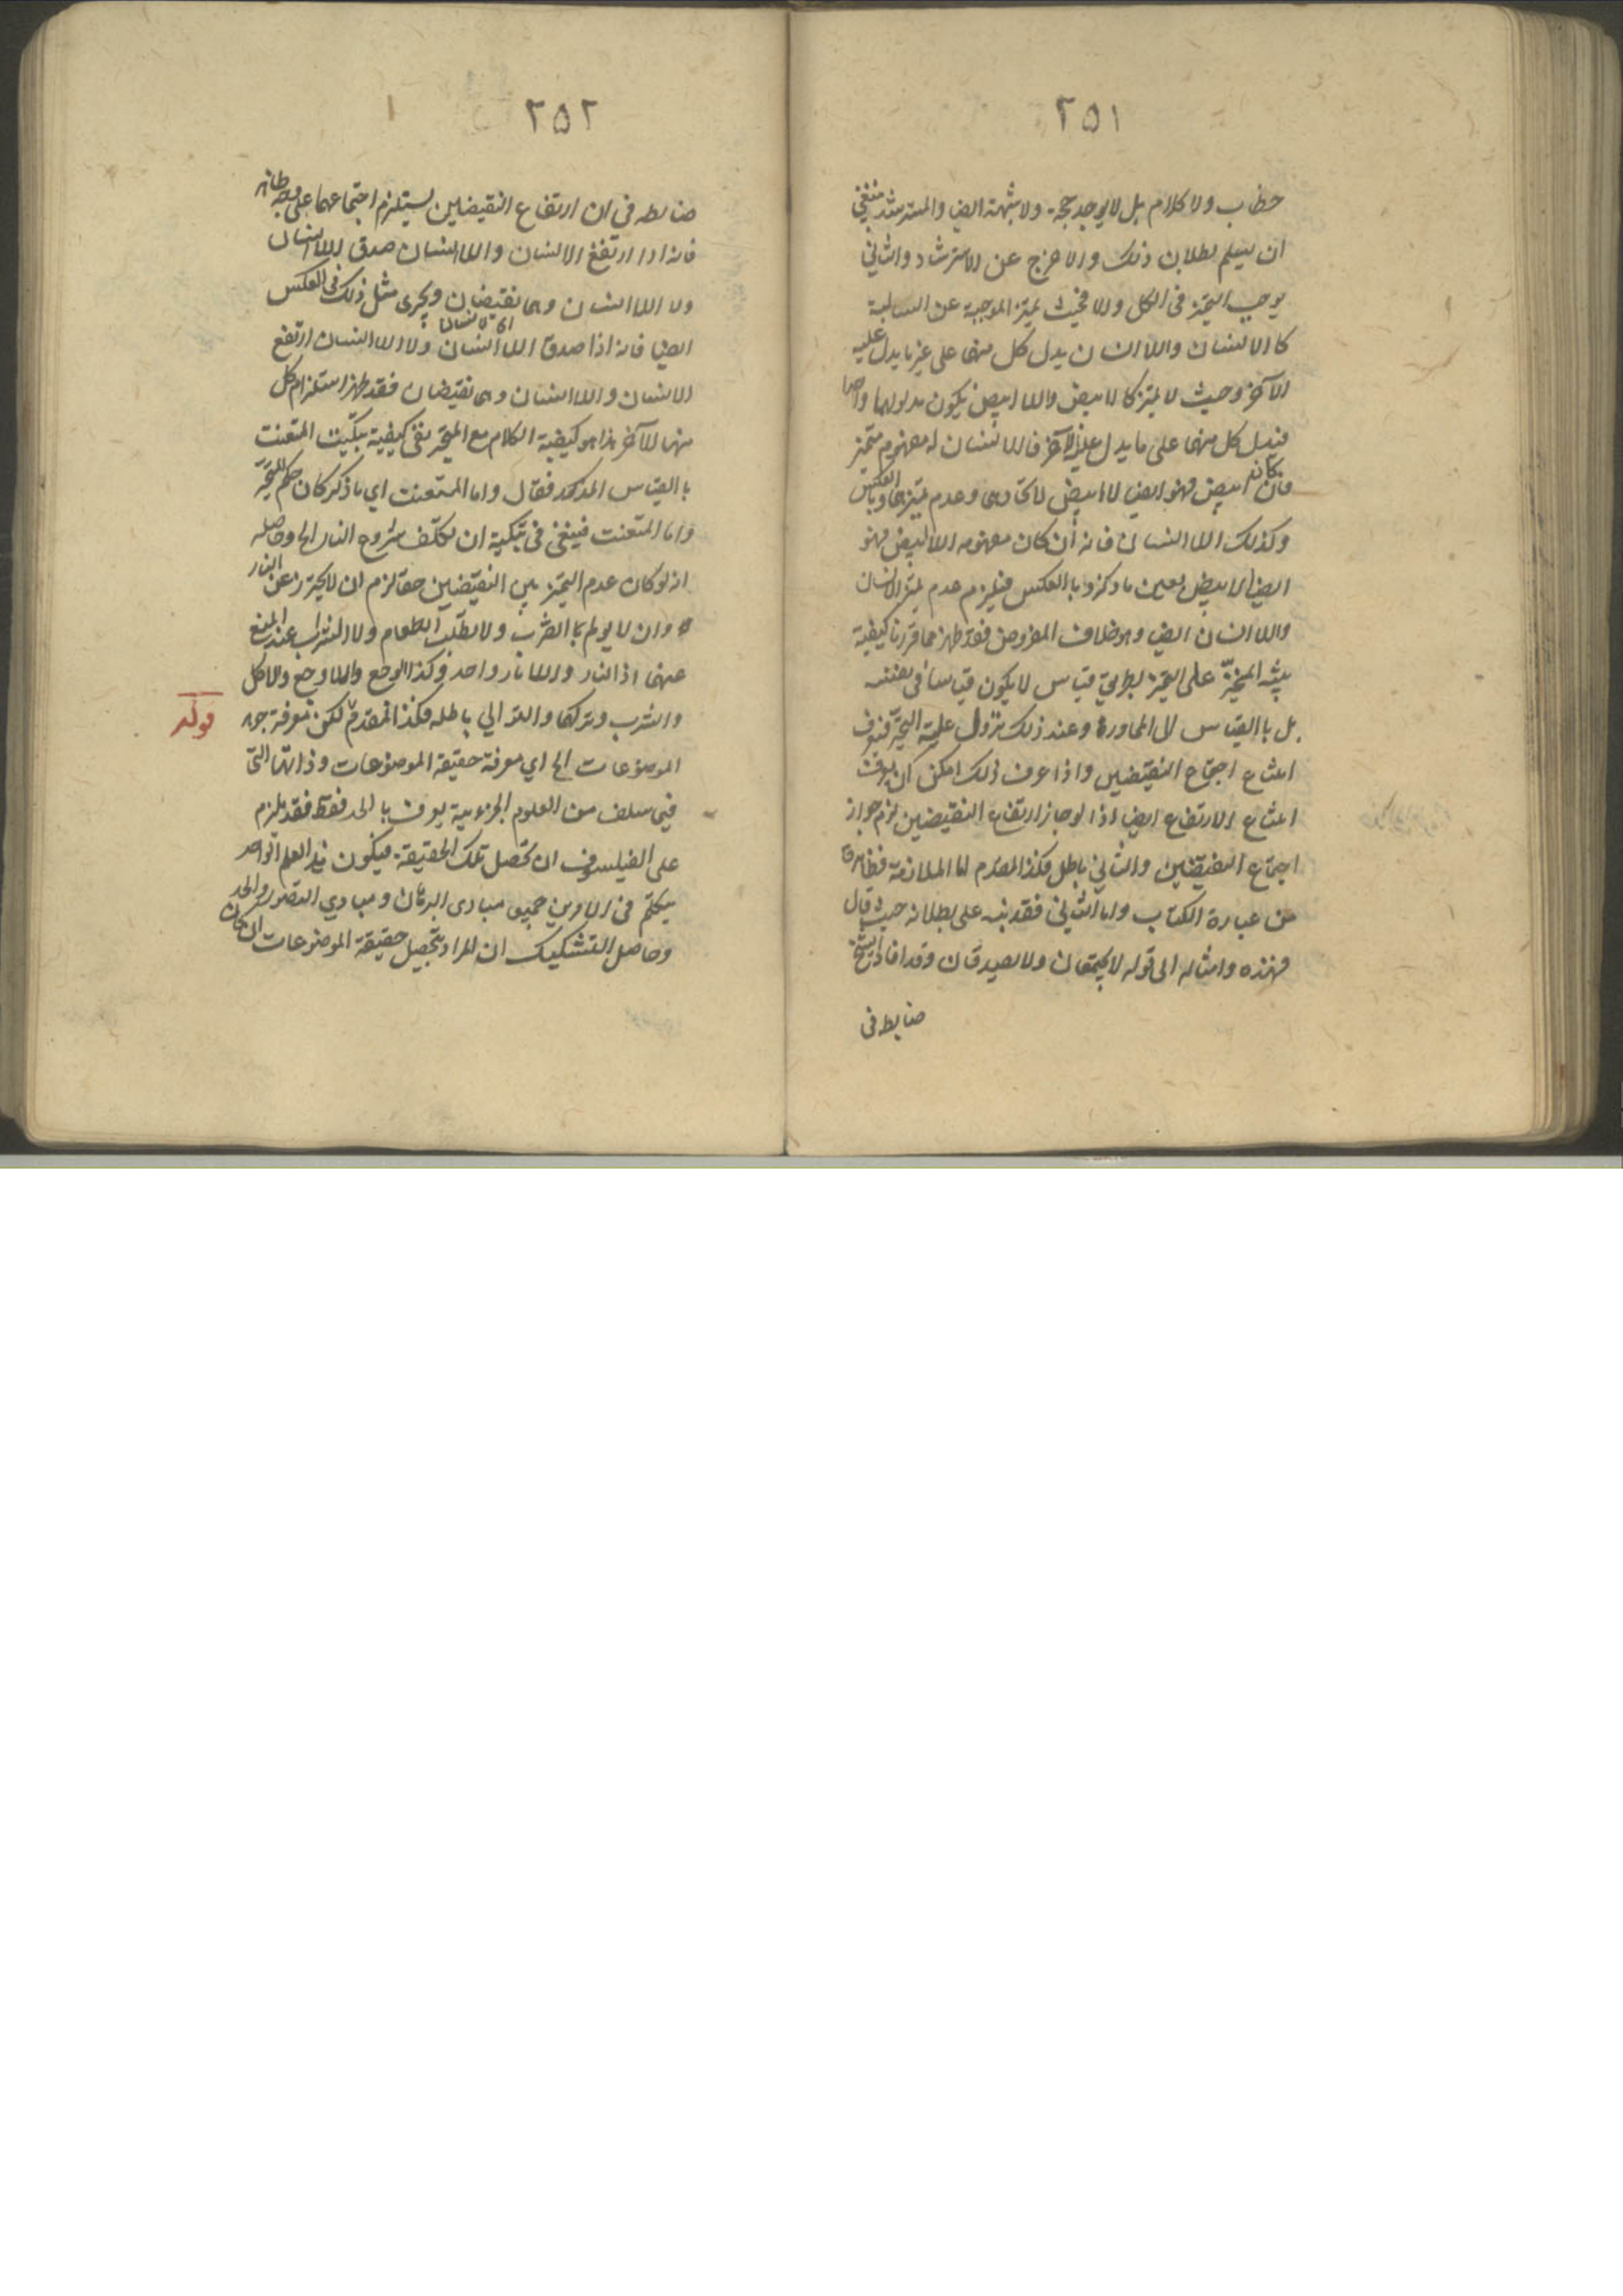 ٢٥١
خطاب ولا كلام بل لا يوجد حجة ولا شبهة ايضا والمسترشد ينبغي
ان يعلم بطلان ذلك والا خرج عن الاسترشاد والثاني
يوجب التميز في الكل والا فحيث يميز الموجبة عن السالبة
كالانسان واللاانسان يدل كل منهما على غير ما يدل عليه
الآخر وحيث لا يميز كالابيض واللاابيض يكون مدلولهما واحدا
فيدل كل منهما على ما يدل عليه الآخر فالانسان له مفهوم متميز
فان كان ابيض فهو ايضا لاابيض لاتحادهما وعدم تميزهما وبالعكس
وكذلك اللاانسان فانه ان كان مفهومه اللاابيض فهو
ايضا الابيض بعين ما ذكر وبالعكس فيلزم عدم تميز الانسان
واللاانسان ايضا وهو خلاف المفروض فقد ظهر مما قررنا كيفية
المتحير على بطريق قياس لا يكون قياسا في نفسه
بل بالقياس الى المحاورة وعند ذلك تزول عليه التحير فيعرف
امتناع اجتماع النقيضين واذا عرف ذلك امكن ان يعرف
امتناع الارتفاع ايضا اذ لو جاز ارتفاع النقيضين لزم جواز
اجتماع النقيضين والثاني باطل فكذا المقدم اما الملازمة فظاهرة
من عبارة الكتاب واما الثاني فقد نبه على بطلانه حيث قال
فهذه وامثاله الى قوله لا يجتمعان ولا يصدقان وقد افاد الشيخ
ضابطه في
٢٥٢
ضابطه في ان ارتفاع النقيضين يستلزم اجتماعهما على وجه
فانه اذا ارتفع الانسان واللاانسان صدق اللاانسان
ولا اللاانسان وهما نقيضان ويجرى مثل ذلك في العكس
اى لا انسان
ايضا فانه اذا صدق اللاانسان ولا اللاانسان ارتفع
الانسان واللاانسان وهما نقيضان فقد ظهر استلزام كل
منهما للآخر هذا هو كيفية الكلام مع المتحير بقى كيفية تبكيت المتعنت
بالقياس المذكور فقال واما المتعنت اي ما ذكر كان حكم المتحير
واما المتعنت فينبغي في تبكيته ان يكلف شروع النار الخ وحاصله
انه لو كان عدم التميز بين النقيضين حقا لزم ان لا يحترز عن النار
وان لا يولم بالضرب ولا يطلب الطعام ولا الشراب عند المنع
عنهما اذ النار واللانار واحد وكذا الوجع واللاوجع والاكل
والشرب وتركهما والتوالي باطله فكذا المقدم لكن معرفة جوهر
قوله
الموضوعات الخ اي معرفة حقيقة الموضوعات وذاتها التي
فيما سلف من العلوم الجزوية يعرف بالحد فقط فقد يلزم
على الفيلسوف ان تحصل تلك الحقيقة فيكون هذا العلم الواحد
يتكلم في الامرين جميعا مبادى البرهان ومبادي التصور والحد
وحاصل التشكيك ان المراد بتحصيل حقيقة الموضوعات ان كان